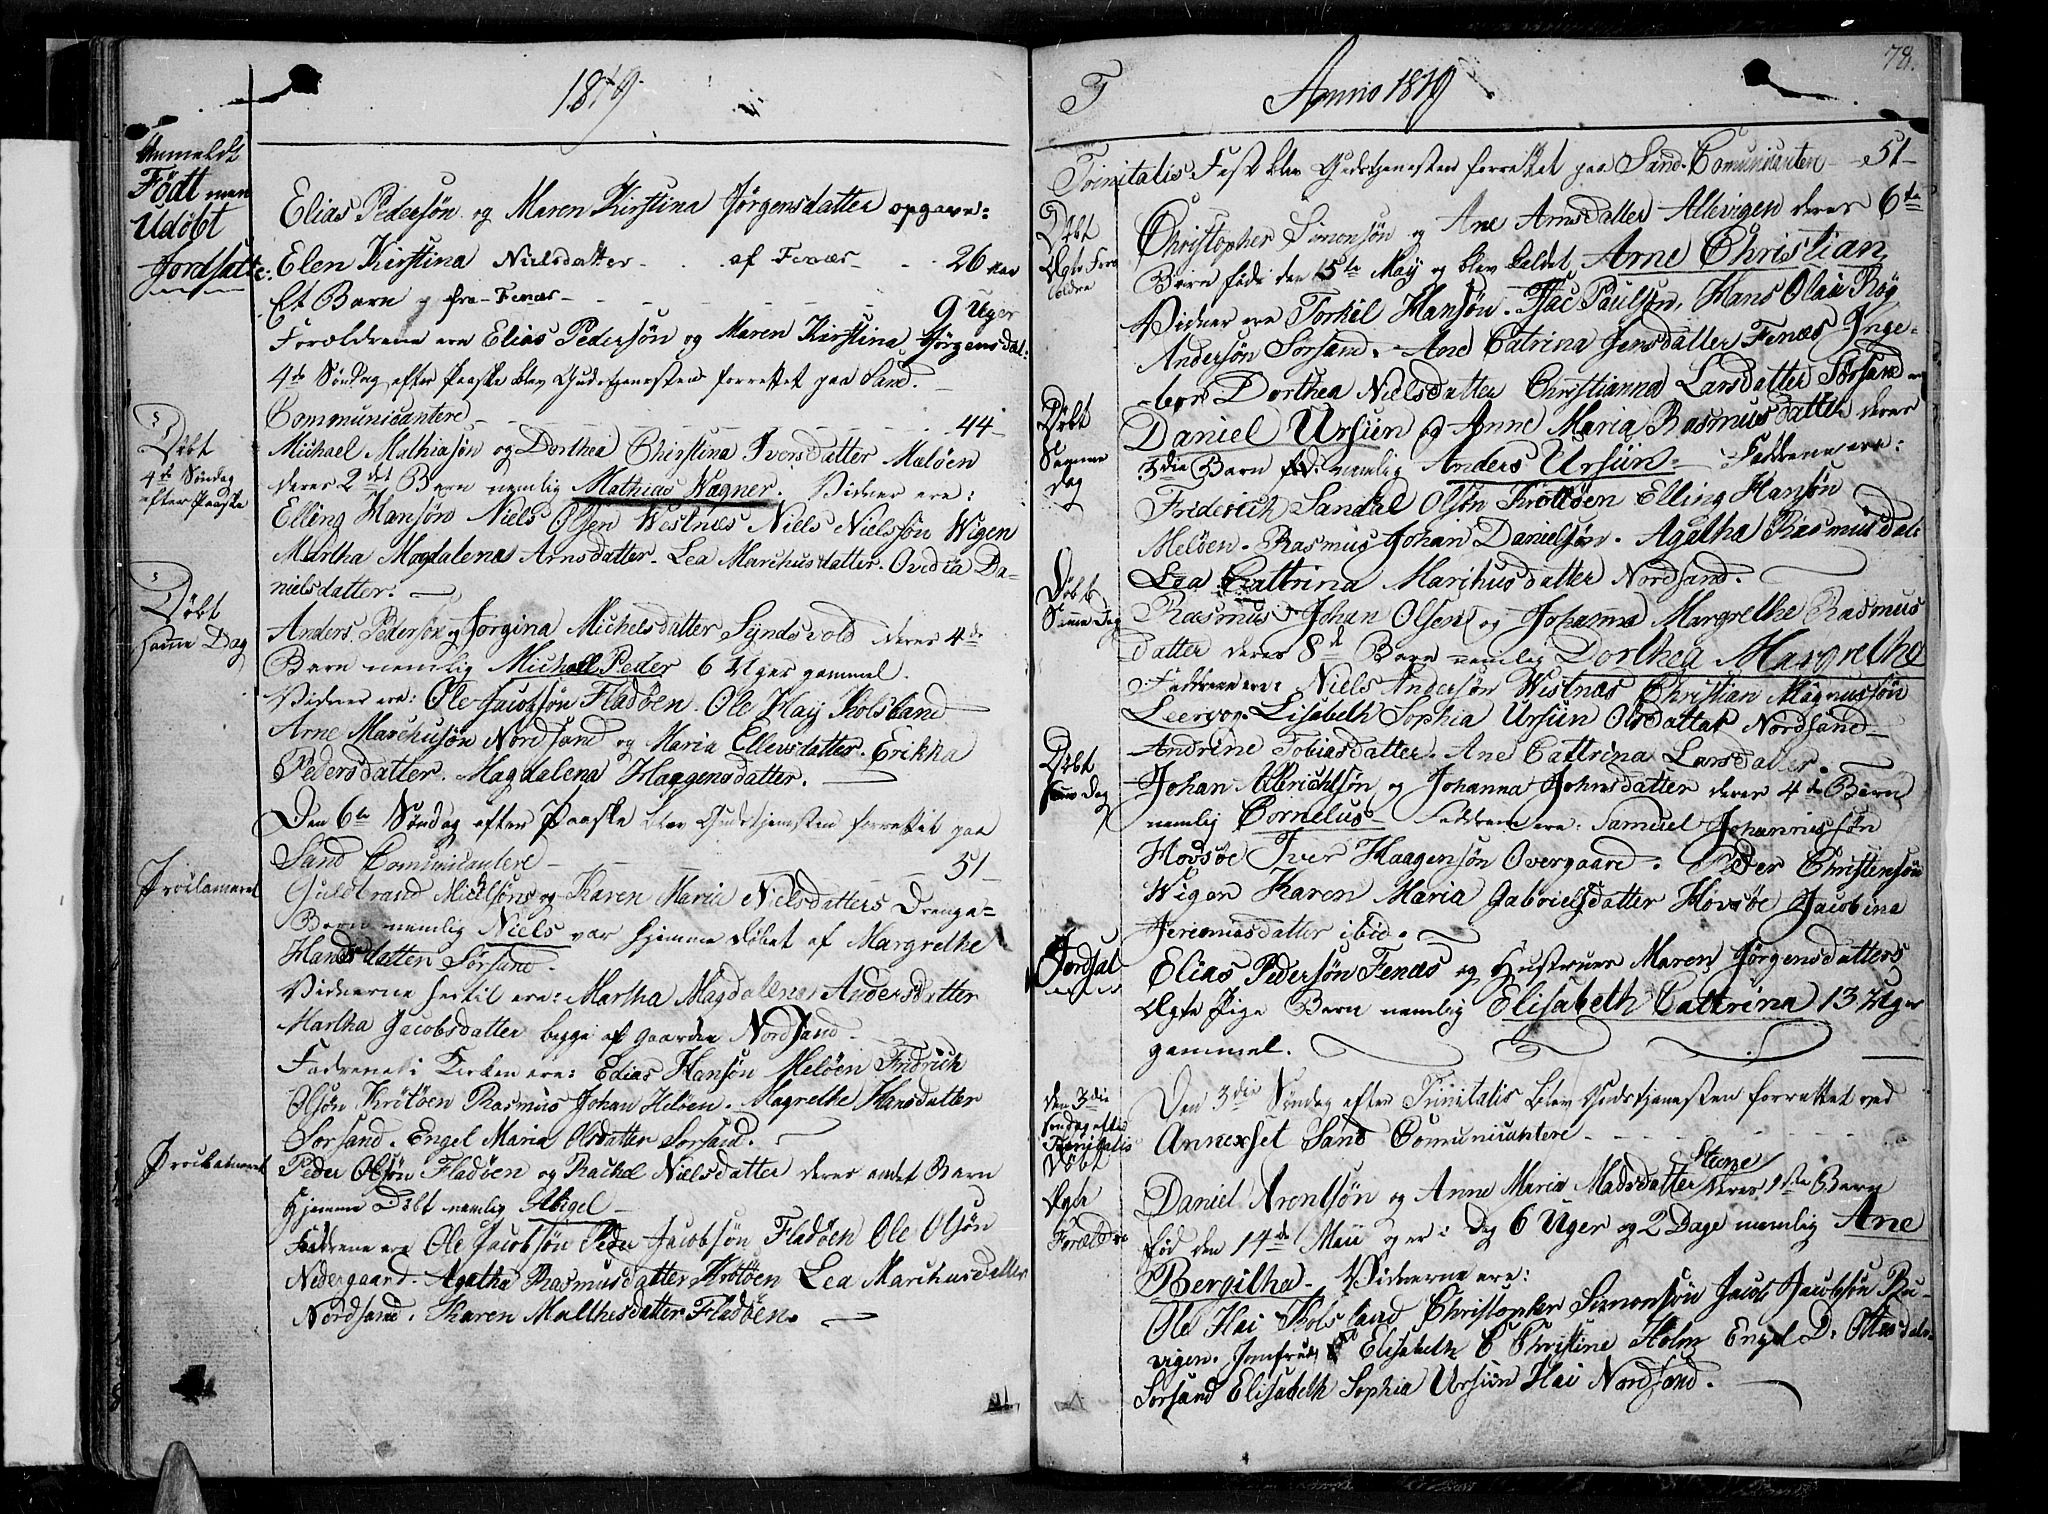 1819.
Anmeldt
Født men
Udøbt
Jordsatte.
Elias Pedersøn og Maren Kirstina Jørgensdatter opgave:
Elen Kirstina Nielsdatter - - af Fenæs - - 26 Aar
Et Barn og fra Fenæs - - - - - 9 Uger
Forældrene ere Elias Pedersøn og Maren Kirstina Jørgensdat:
4de Søndag efter Paaske blev Gudstjenesten forrettet paa Sand.
Communicantere - - - - - - 44
Døbt
4de Søndag
efter Paaske
Michael Mathiasøn og Dorthea Christina Iversdatter Meløen
deres 2det Barn nemlig Mathias Wagner. Vidner ere:
Elling Hansøn Niels Olsen Westnæs Niels Nielssøn Wigen
Martha Magdalena Arnsdatter. Lea Marchusdatter. Ovedia Da-
nielsdatter.
Døbt
samme Dag
Anders Pedersøn og Jorgina Michelsdatter Syndsvold deres 4de
Barn nemlig Michael Peder 6 Uger gammel.
Vidner ere: Ole Jacobsøn Fladøen. Ole Hay Kolsland
Arne Marchusøn Nordsand og Maria Ellevsdatter. Erikka
Pedersdatter. Magdalena Haagensdatter.
Den 6te Søndag efter Paaske blev Gudstjenesten forrettet paa
Sand Comunicantere - - - 51
Proclameret
Guldbrand Michelsøns og Karen Maria Nielsdatters Drenge=
Barn nemlig Niels var hjemme døbet af Margrethe
Hansdatter Sørsand.
Vidnerne hertil ere: Martha Magdalena Andersdatter
Martha Jacobsdatter begge af Gaarden Nordsand
Fadrene i Kirken ere: Edias Hansøn Meløen Fridrich
Olsøn Krötöen Rasmus Johan Meløen. Magrethe Hansdatter
Sorsand. Engel Maria Olsdatter Sorsand.
Proclameret
Peder Olsøn Fladøen og Rachel Nielsdatter deres andet Barn
Hjemme Døbt nemlig Abigel
Fadrene ere Ole Jacobsøn Peder Jacobsøn Fladøen Ole Olsøn
Nedergaard. Agatha Rasmusdatter Krötöen Lea Marchusdatter
Nordsand. Karen Malthesdatter Fladøen.
T Anno 1819 78.
Trinitatis Fest blev Gudstjenesten forrettet paa Sand. Comunicanter - 51
Døbt
Ægte For
ældre
Christopher Simonsøn og Ane Arnsdatter Allevigen deres 6te
Barn født den 15te May og blev kaldet Arne Christian
Vidner ere Torkil Hansøn. Isac Paulsøn, Hans Olai Røg
Andersøn Sørsand. Ane Catrina Jensdatter Fenæs Inge-
bor Dorthea Nielsdatter Christianna Larsdatter Sörsand
Døbt
Samme
dag
Daniel Ursin og Anne Maria Rasmusdatter deres
3die Barn nemlig Anders Ursin. Fadrene ere:
Friderich Sandal Olsøn Krötöen Elling Hansøn
Meløen. Rasmus Johan Danielsøn. Agatha Rasmusdat:
Lea Cattrina Marchusdatter Nordsand.
Døbt
Samme Dag
Rasmus Johan Olsen og Johanna Margrethe Rasmus
datter deres 8de Barn nemlig Dorthea Margrethe
Fadrene ere: Niels Andersøn Westnæs Christian Magnussøn
Leerpog. Lisabeth Sophia Ursin Olsdatter Nordsand
Andrine Tobiasdatter. Ane Cattrina Larsdatter.
Døbt
samme Dag
Johan Albrichtsøn og Johanna Johnsdatter deres 4de Barn
nemlig Cornelus Fadrene ere: Samuel Johannessøn
Hovsøe Iver Haagensøn Overgaard. Peder Christensøn
Wigen Karen Maria Gabrielsdatter Hovsøe Jacobina
Jeremiasdatter ibid.
Jordsat
Elias Pedersøn Fenæs og Hustrues Maren Jørgensdatters
Ægte Pige Barn nemlig Elisabeth Cattrina 13 Uger
gammel.
den 3die
Søndag efter
Trinitatis
Døbt
Ægte
Forældre
Den 3die Søndag efter Trinitatis blev Gudstjenesten forrettet ved
Annexset Sand Comunicantere - - - -
Daniel Arontsøn og Anne Maria Madsdatter Stene deres 1ste Barn
fød den 14de Maii og er i dag 6 Uger og 2 Dage nemlig Ane
Bergitha. Vidnerne ere:
Ole Hai Kolsland Christopher Simonsøn Jacob Jacobsøn Bu-
vigen. Jomfrue Elisabeth C Christine Holm Engel D: Ottesdat-
Sorsand Elisabeth Sophia Ursin Hai Nordsand.